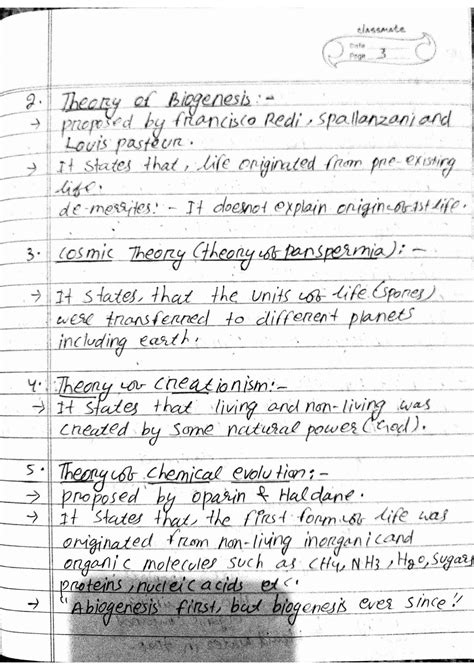 classmate
Date
Page 3
2. Theory of Biogenesis :-
→ proposed by francisco Redi, Spallanzani and
Louis pasteur.
→ It states that, life originated from pre-existing
life.
de-merrites: - It doesnot explain origin of 1st life.
3. cosmic Theory (theory of panspermia) : -
→ It states, that the units of life (spores)
were transferred to different planets
including earth.
4. Theory of creationism:-
→ It states that living and non-living was
created by some natural power (God).
5. Theory of chemical evolution: -
→ proposed by oparin & Haldane.
→ It states that, the first form of life was
originated from non-living inorganic and
organic molecules such as CH4, NH3, H2O, sugars
proteins, nucleic acids etc.
→ "Abiogenesis first, but biogenesis ever since"!